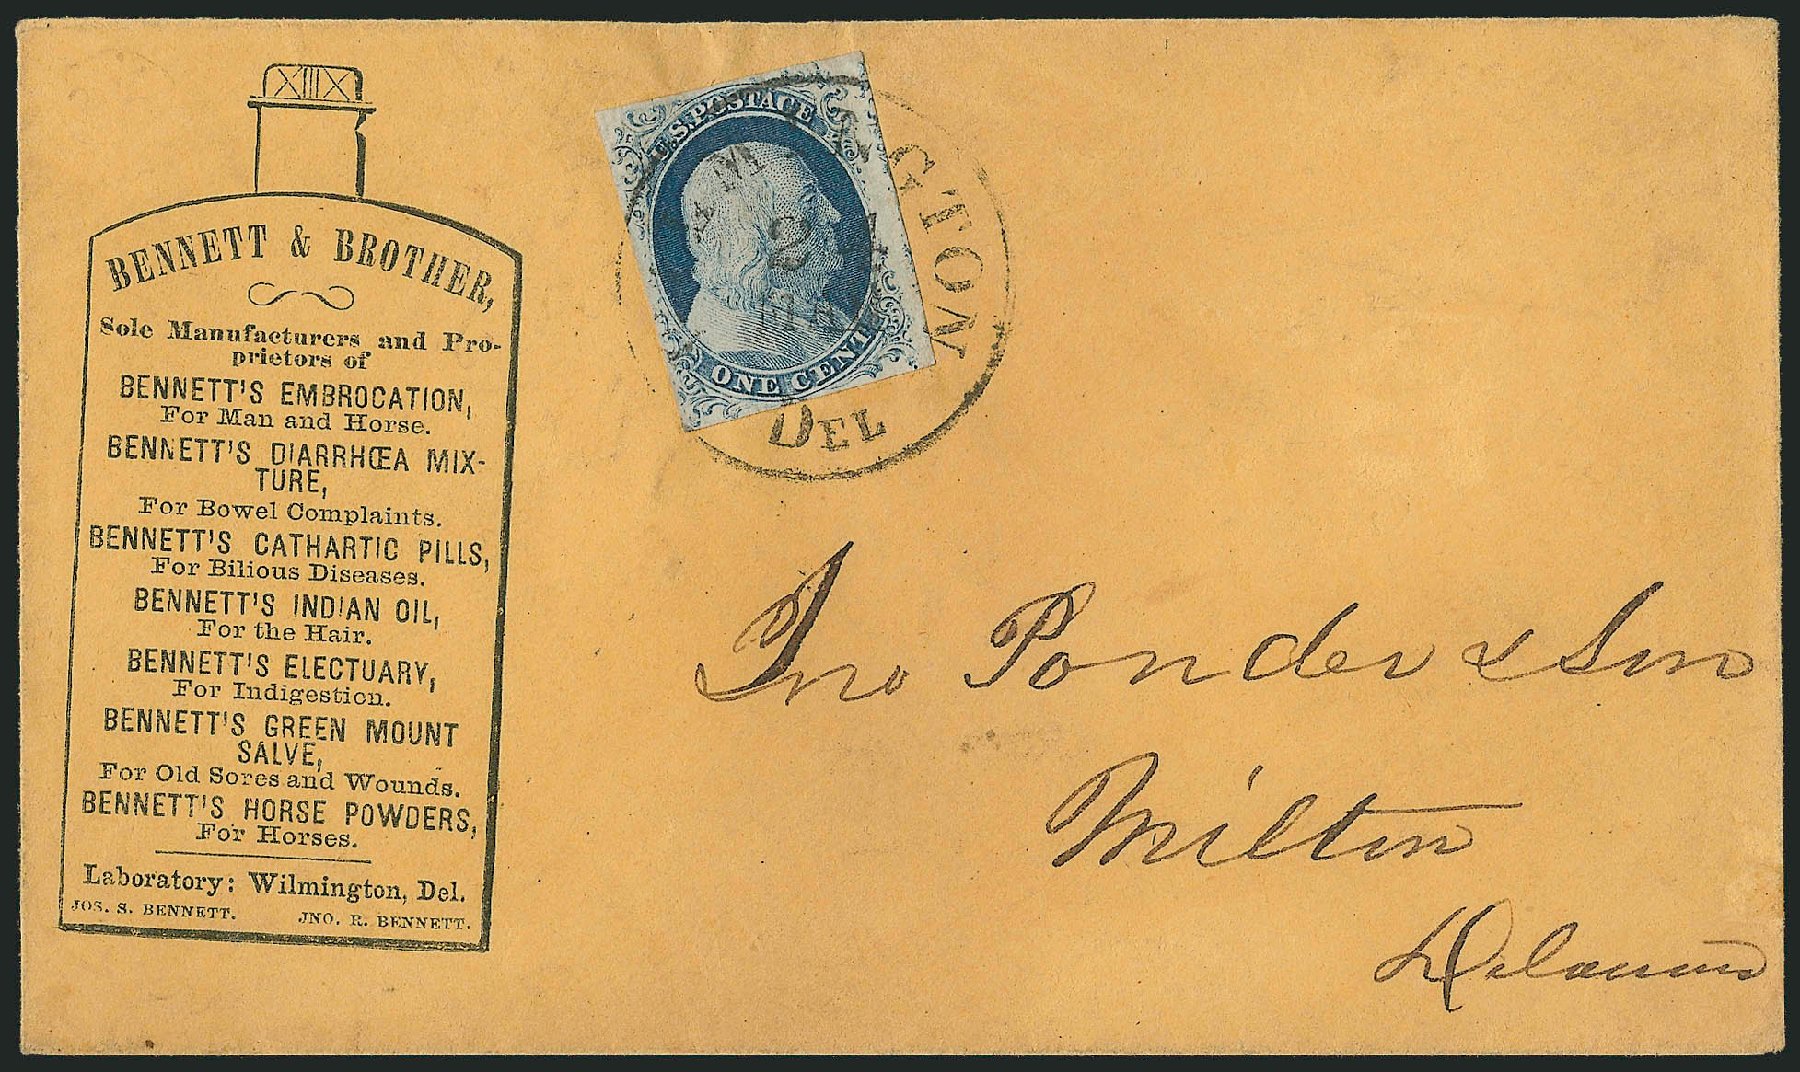 BENNETT & BROTHER,
Sole Manufacturers and Pro-
prietors of
BENNETT'S EMBROCATION,
For Man and Horse.
BENNETT'S DIARRHŒA MIX-
TURE,
For Bowel Complaints.
BENNETT'S CATHARTIC PILLS,
For Bilious Diseases.
BENNETT'S INDIAN OIL,
For the Hair.
BENNETT'S ELECTUARY,
For Indigestion.
BENNETT'S GREEN MOUNT
SALVE,
For Old Sores and Wounds.
BENNETT'S HORSE POWDERS,
For Horses.
Laboratory: Wilmington, Del.
JOS. S. BENNETT. JNO. R. BENNETT.
U.S. POSTAGE
ONE CENT
NGTON
2
DEL
Jno Ponder & Son
Milton
Delaware